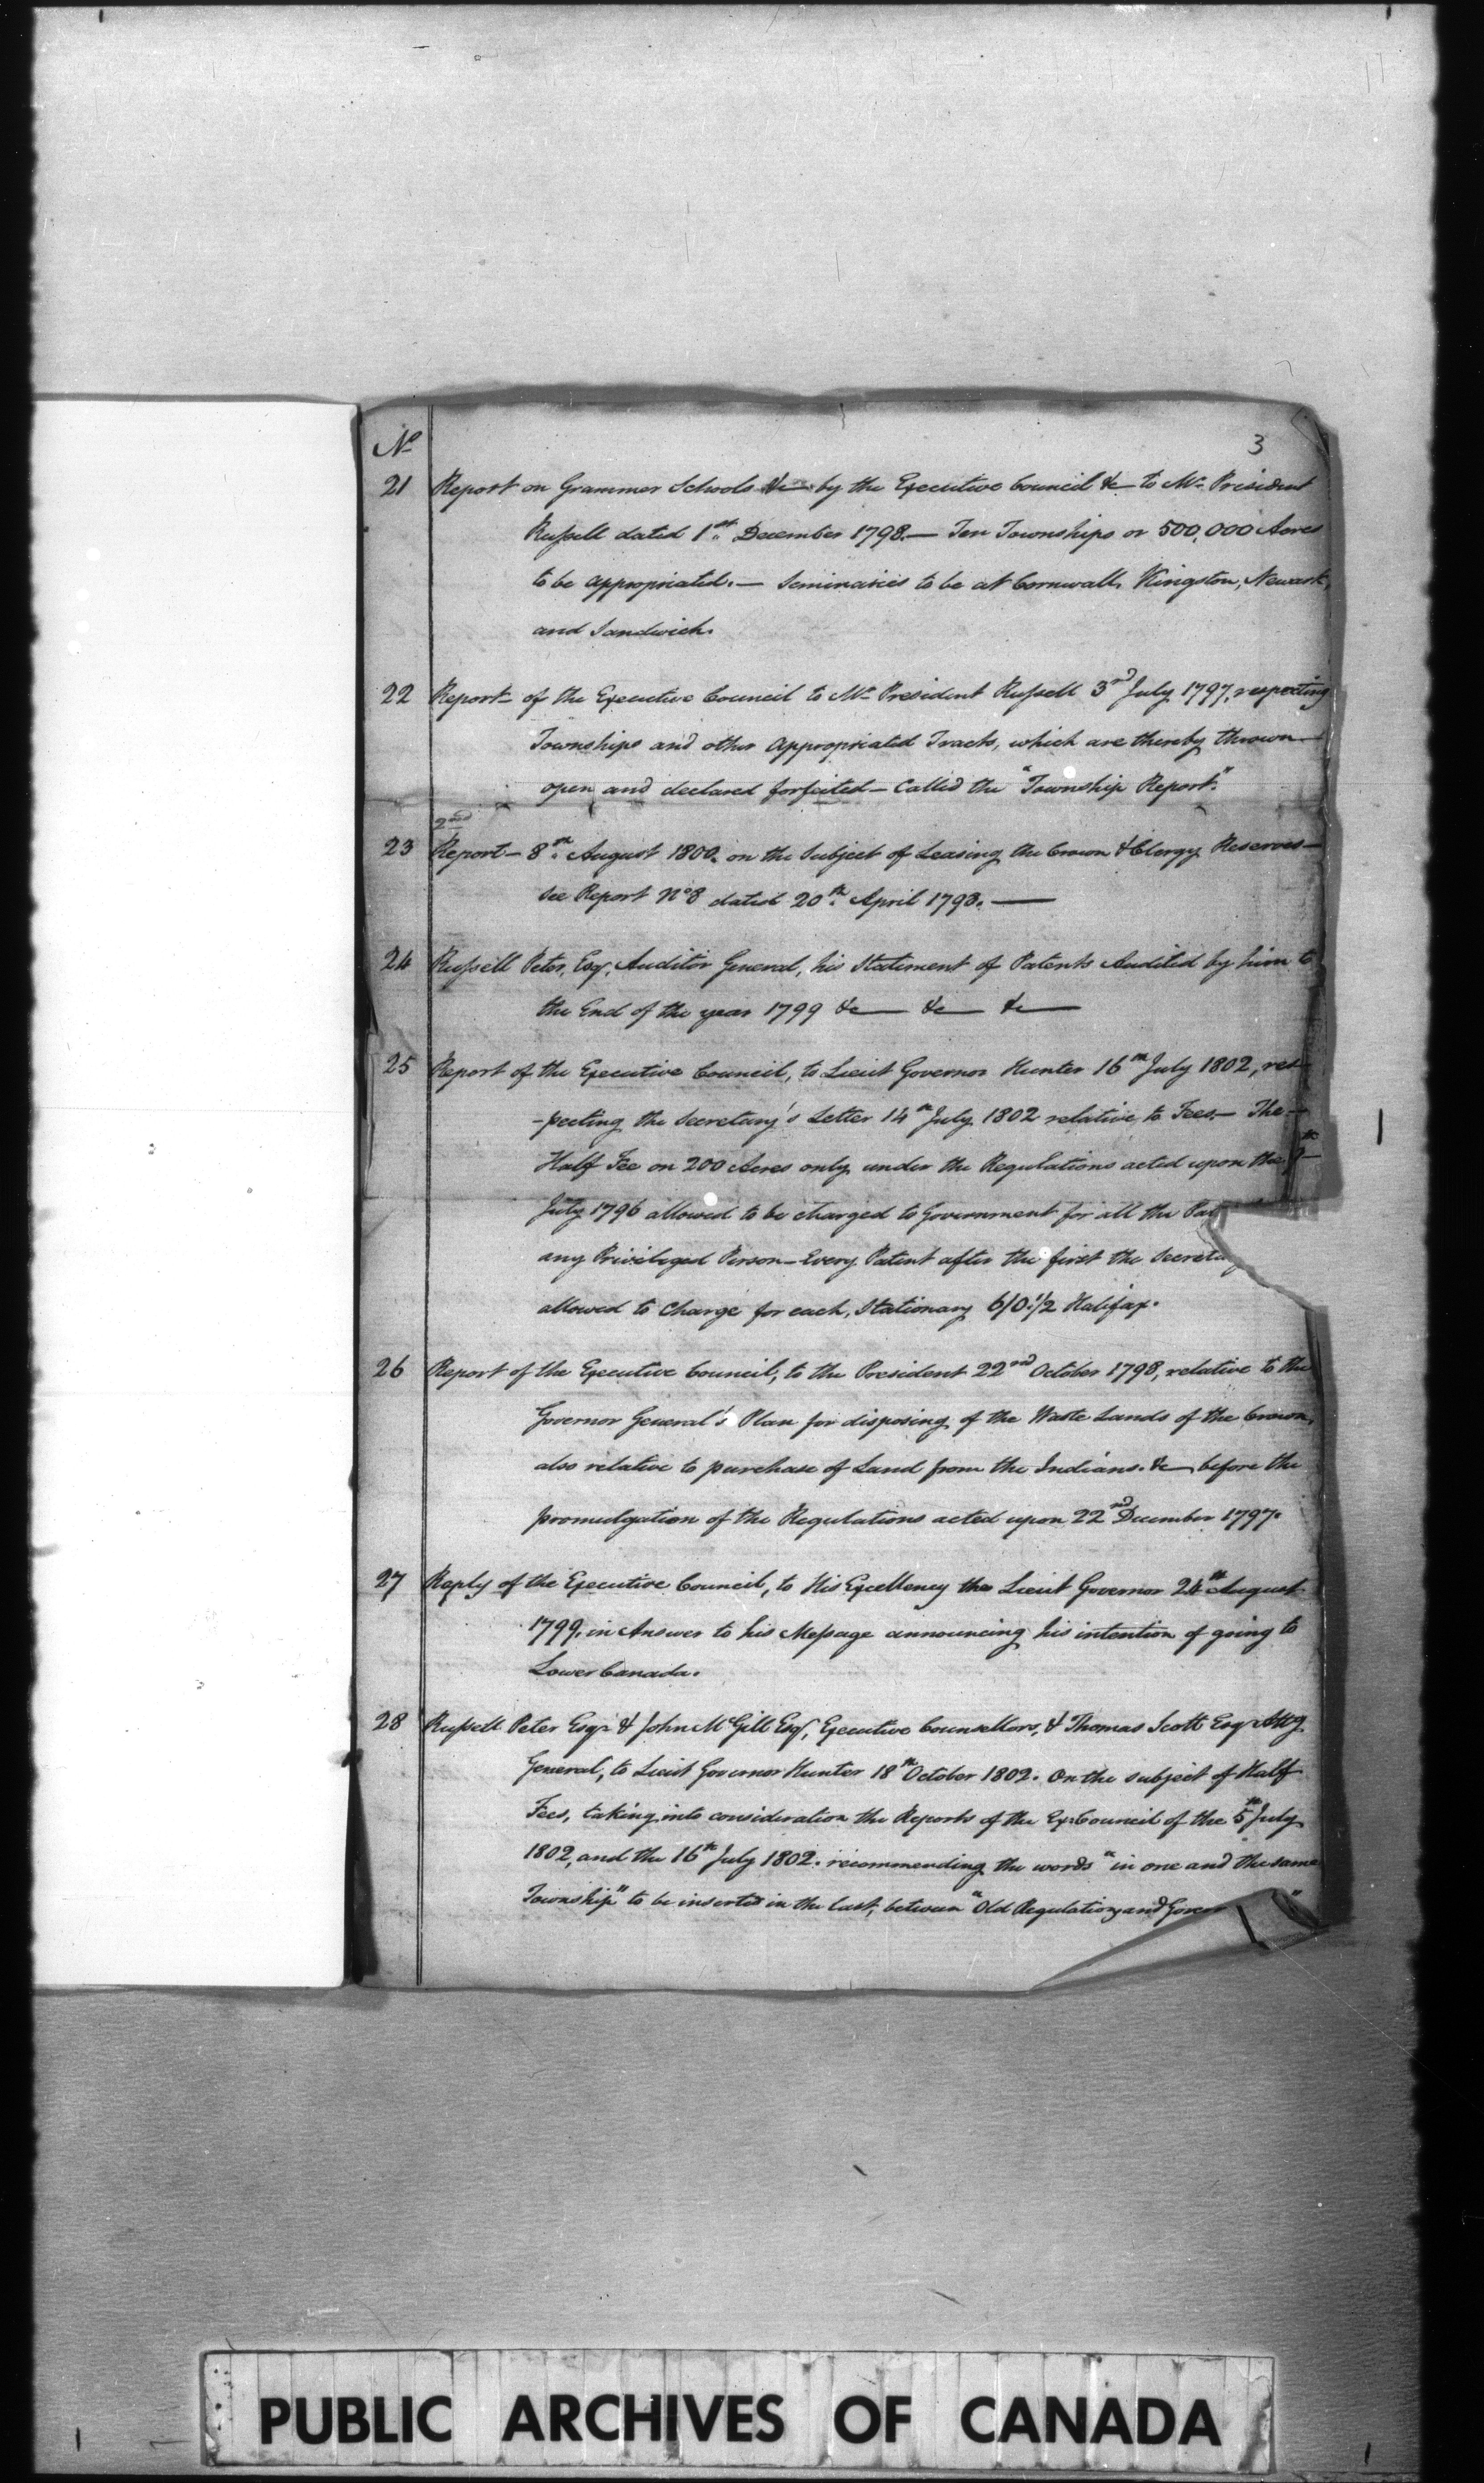 3
No
21 Report on Grammer Schools &c by the Executive Council &c to Mr President
Russell dated 1st December 1798.— Ten Townships or 500,000 Acres
to be appropriated.— Seminaries to be at Cornwall, Kingston, Newark,
and Sandwich.
22 Report of the Executive Council to Mr President Russell 3rd July 1797, respecting
Townships and other appropriated Tracts, which are thereby thrown
open and declared forfeited — Called the "Township Report."
2nd
23 Report — 8th August 1800. on the Subject of Leasing the Crown & Clergy Reserves —
See Report No 8 dated 20th April 1798. —
24 Russell Peter, Esq, Auditor General, his Statement of Patents Audited by him to
the End of the year 1799 &c — &c — &c —
25 Report of the Executive Council, to Lieut Governor Hunter 16th July 1802, res-
-pecting the Secretary's Letter 14th July 1802 relative to Fees — The —
Half Fee on 200 Acres only under the Regulations acted upon the
July 1796 allowed to be charged to Government for all the Pat
any Privileged Person — Every Patent after the first the Secretary
allowed to Charge for each, Stationary 6/0.1/2 Halifax.
26 Report of the Executive Council, to the President 22nd October 1798, relative to the
Governor General's Plan for disposing of the Waste Lands of the Crown,
also relative to purchase of Land from the Indians. &c — before the
promulgation of the Regulations acted upon 22nd December 1797.
27 Reply of the Executive Council, to His Excellency the Lieut Governor 24th August
1799, in Answer to his Message announcing his intention of going to
Lower Canada.
28 Russell Peter Esqr & John McGill Esqr, Executive Counsellors, & Thomas Scott Esqr Atty
General, to Lieut Governor Hunter 18th October 1802. On the subject of Half
Fees, taking into consideration the Reports of the Ex. Council of the 5th July
1802, and the 16th July 1802. recommending the words "in one and the same
Township" to be inserted in the last, between "Old Regulations and Govern
PUBLIC ARCHIVES OF CANADA